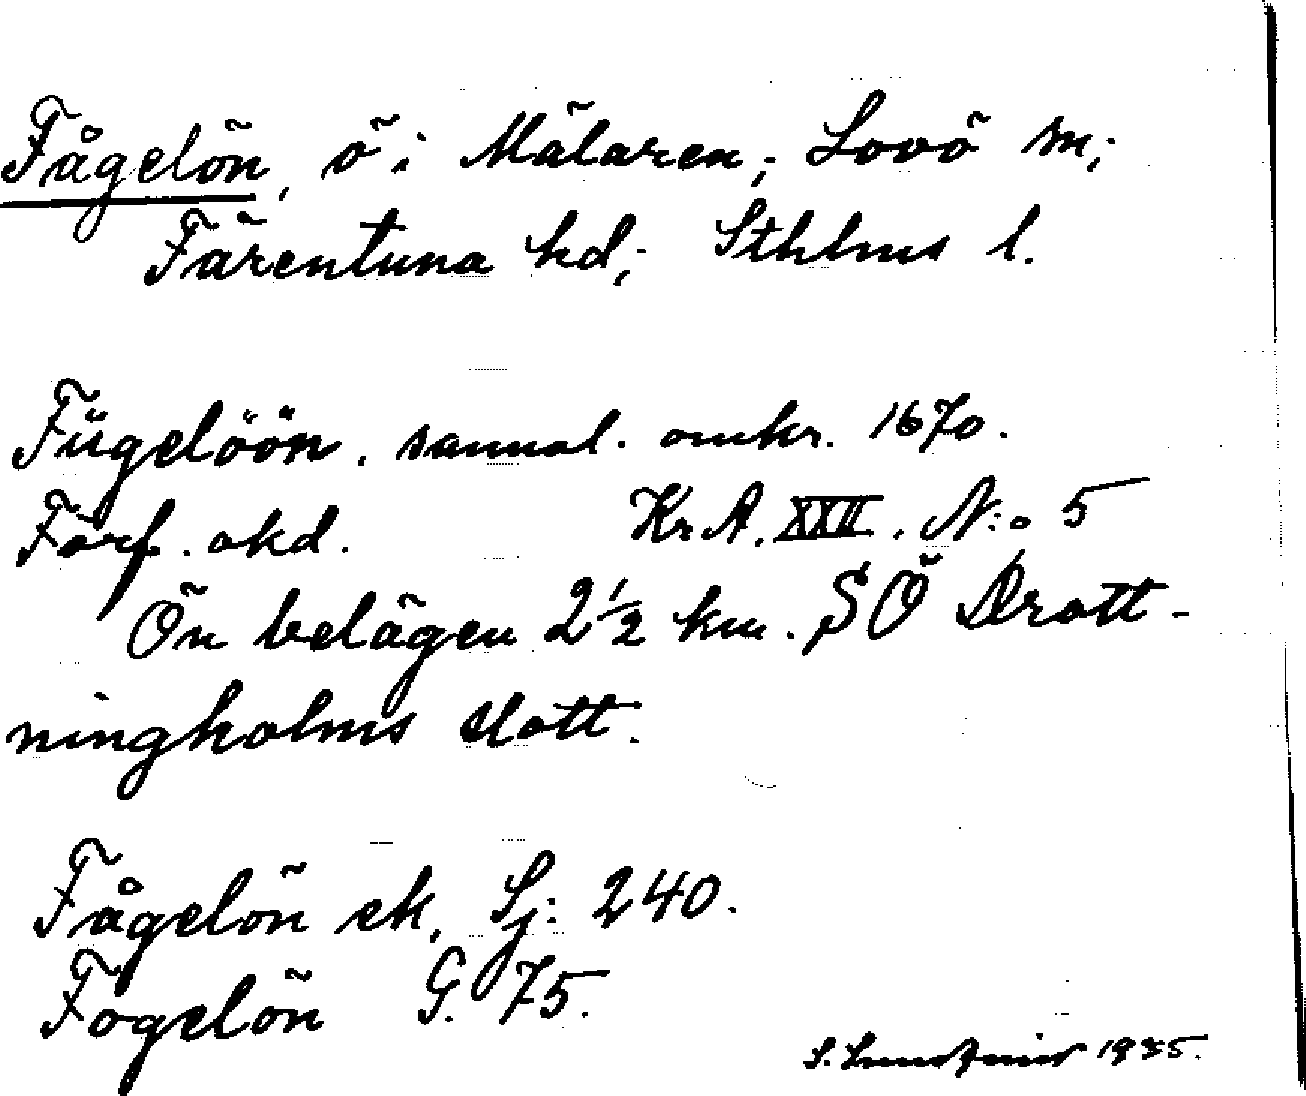 Fågelön, ö i Mälaren; Lovö sn;
Färentuna hd; Sthlms l.
Fügelöön. samml. omkr. 1670.
Förf. okd. Kr A. XXII. N:o 5
Ön belägen 2½ km. SÖ Drott-
ningholms slott.
Fågelön ek. Sj: 240.
Fogelön G. 75.
S. 1935.